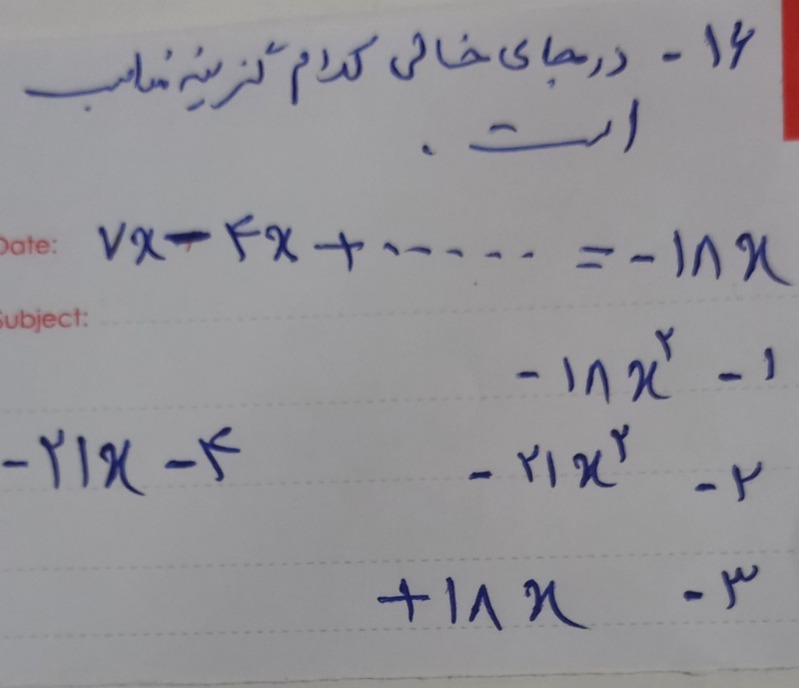 ۱۶- در جای خالی کدام گزینه مناسب
است .
Date: ۷x - ۴x + ...... = -۱۸x
Subject:
۱- -۱۸x²
۲- -۲۱x² ۴- -۲۱x
۳- +۱۸x